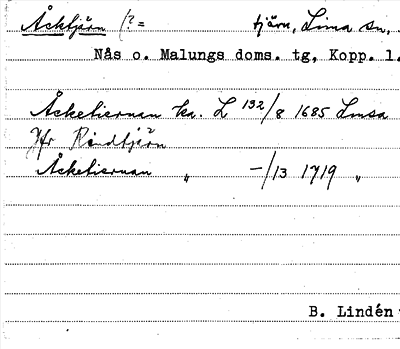 Åcktjärn (?= tjärn, Lima sn,
Nås o. Malungs doms. tg, Kopp. l.
Åcketiernan ka. L 132/8 1685 Lmsa
Jfr Rindtjärn
Åcketiernan " -/13 1719 "
B. Lindén